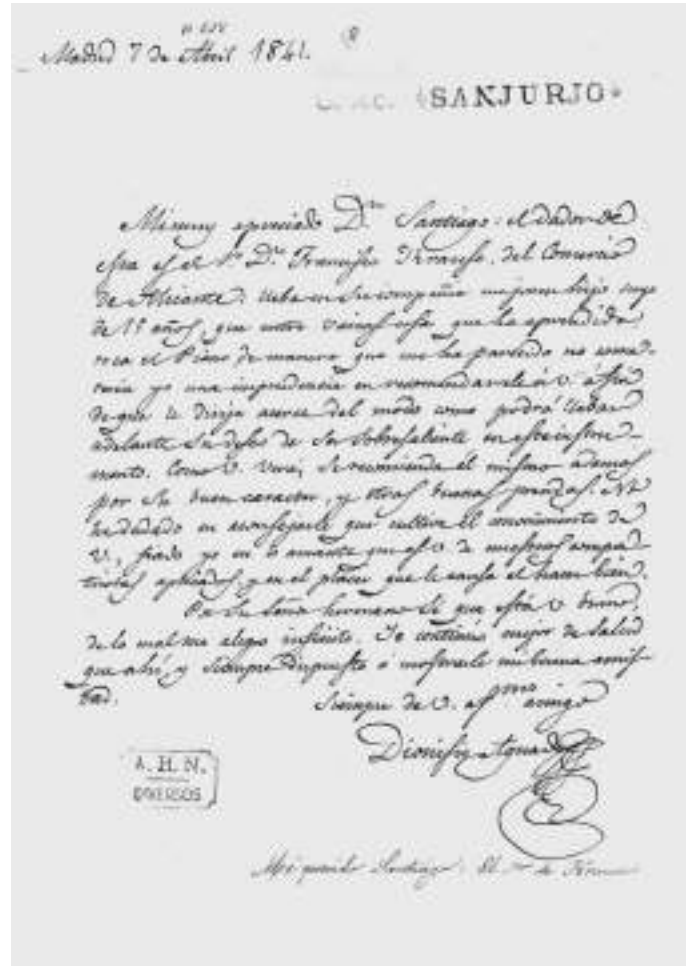 Madrid 7 de Abril 1841.
SANJURJO
Mi muy apreciado D.n Santiago: el dador de
esta es el S.r D.n Francisco Krause, del Comercio
de Alicante. Lleba en su compañia un joven hijo suyo
de 15 años, que entre varias cosas que ha aprendido
toca el Piano de manera que me ha parecido no come-
teria yo una imprudencia en recomendarsele á V. á fin
de que le dirija acerca del modo como podrá llebar
adelante su deseo de ser sobresaliente en este instru-
mento. Como V. verá, se recomienda el mismo ademas
por su buen caracter, y otras buenas prendas. No
he dudado en aconsejarle que cultive el conocimiento de
V., fiado yo en lo amante que es V. de nuestros compa-
triotas aplicados, y en el placer que le causa el hacer bien.
Por su Señor hermano sé que está V. bueno,
de lo cual me alegro infinito. Yo continúo mejor de salud
que ahi, y siempre dispuesto á mostrarle mi buena amis-
tad.
Siempre de V. af.mo amigo
Dionisio Aguado
A. H. N.
DIVERSOS
Santiago